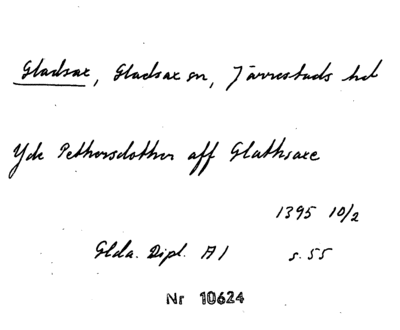 Gladsax, Gladsax sn, Järrestads hd
Yde Pethersdotther aff Glathsaxe
1395 10/2
Glda. Dipl. A1 s. 55
Nr 10624